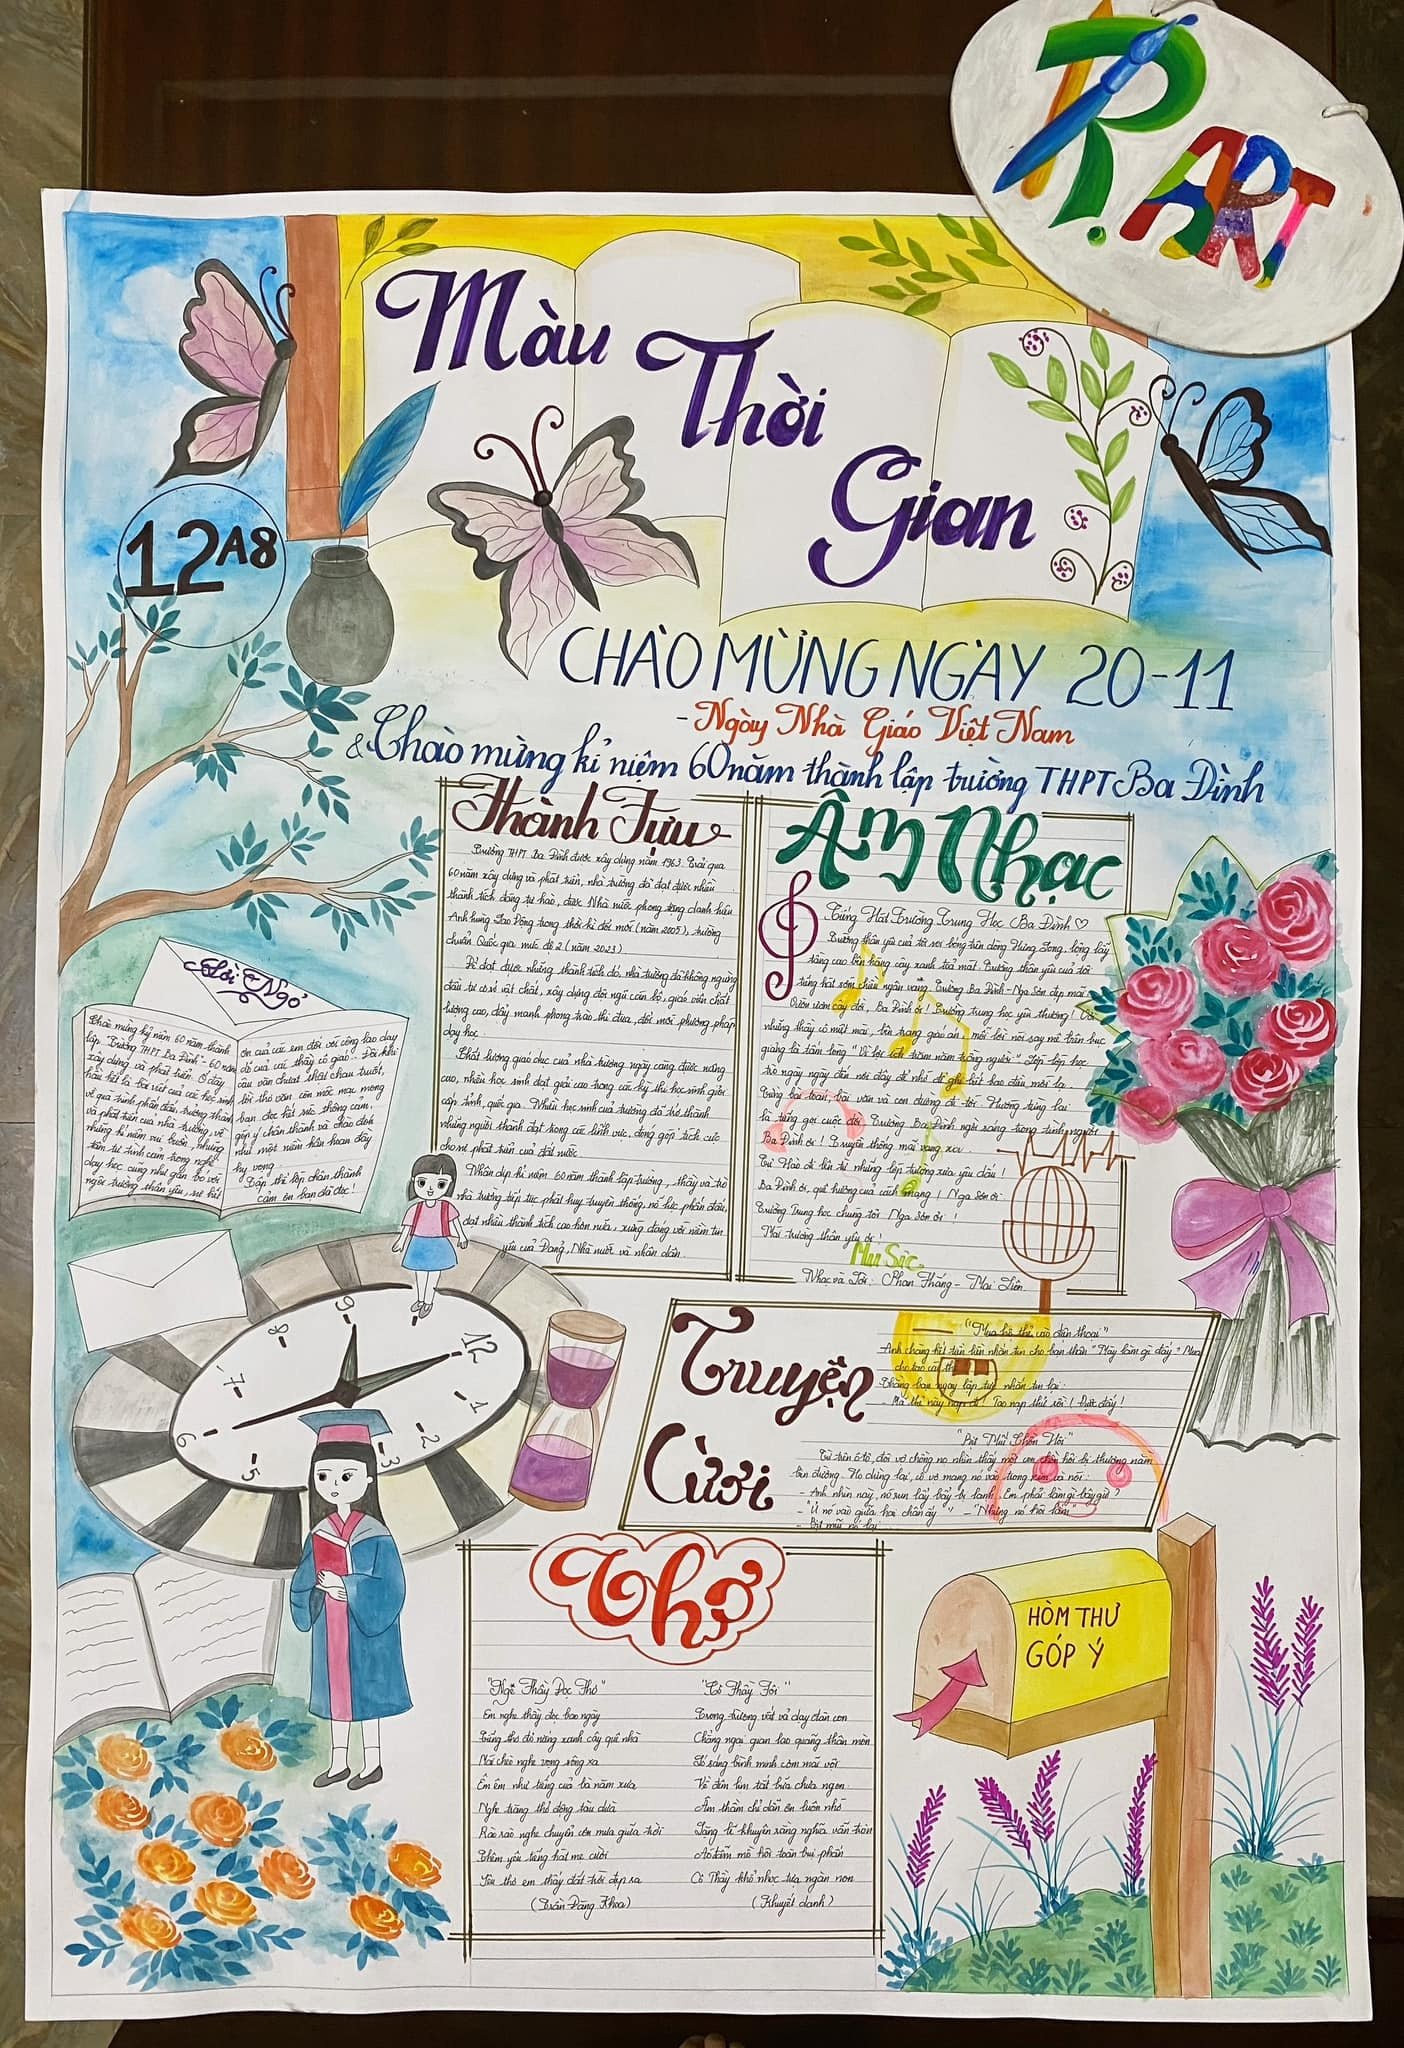 R.ART
Màu
Thời
Gian
12A8
CHÀO MỪNG NGÀY 20-11
- Ngày Nhà Giáo Việt Nam
& Chào mừng kỉ niệm 60 năm thành lập trường THPT Ba Đình
Lời Ngỏ
Chào mừng kỷ năm 60 năm thành
lập "Trường THPT Ba Đình - 60 năm
xây dựng và phát triển. Ở đây
hầu hết là bài viết của các học sinh
về quá trình phấn đấu, trưởng thành
và phát triển của nhà trường, về
những kỉ niệm vui buồn, những
tâm tư tình cảm trong nghề
dạy học cũng như gắn bó với
ngôi trường thân yêu, sự biết
ơn của các em đối với công lao dạy
dỗ của các thầy cô giáo. Đôi khi
câu văn chưa thật chau chuốt,
lời thơ còn mộc mạc mong
bạn đọc hết sức thông cảm,
góp ý chân thành và chào đón
như một niềm hân hoan đầy
hy vọng.
Tập thể lớp chân thành
cảm ơn bạn đã đọc!
Thành Tựu
Trường THPT Ba Đình được xây dựng năm 1963. Trải qua
60 năm xây dựng và phát triển, nhà trường đã đạt được nhiều
thành tích đáng tự hào, được Nhà nước phong tặng danh hiệu
Anh hùng Lao Động trong thời kì đổi mới (năm 2005), trường
chuẩn Quốc gia mức độ 2 (năm 2023)
Để đạt được những thành tích đó, nhà trường đã không ngừng
đầu tư cơ sở vật chất, xây dựng đội ngũ cán bộ, giáo viên chất
lượng cao, đẩy mạnh phong trào thi đua, đổi mới phương pháp
dạy học.
Chất lượng giáo dục của nhà trường ngày càng được nâng
cao, nhiều học sinh đạt giải cao trong các kỳ thi học sinh giỏi
cấp tỉnh, quốc gia. Nhiều học sinh của trường đã trở thành
những người thành đạt trong các lĩnh vực, đóng góp tích cực
cho sự phát triển của đất nước
Nhân dịp kỉ niệm 60 năm thành lập trường, thầy và trò
nhà trường tiếp tục phát huy truyền thống, nỗ lực phấn đấu,
đạt nhiều thành tích cao hơn nữa, xứng đáng với niềm tin
yêu của Đảng, Nhà nước và nhân dân.
Âm Nhạc
Tiếng Hát Trường Trung Học Ba Đình ♡
Trường thân yêu của tôi soi bóng bên dòng Hưng Long, lồng lộng
tầng cao bên hàng cây xanh toả mát. Trường thân yêu của tôi
tiếng hát sớm chiều ngân vang. Trường Ba Đình - Nga Sơn đẹp mãi
Vườn ươm cây đời, Ba Đình ơi! Trường trung học yêu thương!
những thầy cô miệt mài, bên trang giáo án, mỗi lời nói say mê trên bục
giảng là tấm lòng "Vì lợi ích trăm năm trồng người". Lớp lớp học
trò ngày ngày đến nơi đây để nhớ để ghi biết bao điều mới lạ.
Từng bài toán, bài văn và con đường đi tới. Hương từng lai
là tiếng gọi cuộc đời. Trường Ba Đình ngời sáng trong tình người
Ba Đình ơi! Truyền thống mãi vang xa.
Tự Hào đi lên từ những lớp trường xưa yêu dấu!
Ba Đình ơi, quê hương của cách mạng! Nga Sơn ơi
Trường Trung học chúng tôi Nga Sơn ơi!
Mái trường thân yêu ơi!
Music
Nhạc và Lời: Phan Thắng - Mai Liên
Truyện
Cười
"Mua hộ thẻ cào điện thoại"
Anh chàng hết tiền liền nhắn tin cho bạn thân "Mày làm gì đấy? Mua
cho tao cái thẻ
Thằng bạn ngay lập tức nhắn tin lại:
- Mã thẻ này nạp đi! Tao nạp thử rồi! Được đấy!
"Bịt Mũi Chồn Hôi"
Từ trên ô tô, đôi vợ chồng nọ nhìn thấy một con chồn hôi bị thương nằm
bên đường. Họ dừng lại, cô vợ mang nó vào trong xe và nói:
- Anh nhìn này, nó run lẩy bẩy bị lạnh. Em phải làm gì bây giờ?
- "Ủ nó vào giữa hai chân ấy" - "Nhưng nó hôi lắm"
- Bịt mũi nó lại
Thơ
"Nghe Thầy Đọc Thơ"
Em nghe thầy đọc bao ngày
Tiếng thơ đỏ nắng xanh cây quê nhà
Mái chèo nghe vọng sông xa
Êm êm như tiếng của bà năm xưa
Nghe trăng thở động tàu dừa
Rào rào nghe chuyển cơn mưa giữa trời
Thêm yêu tiếng hát mẹ cười
Yêu thơ em thấy đất trời đẹp ra
(Trần Đăng Khoa)
"Cô Thầy Tôi"
Trong trường vất vả dạy đàn con
Chẳng ngại gian lao quãng thân mòn
Tố sáng bình minh còn mải vội
Về đêm lịm tắt bữa chưa ngon
Âm thầm chỉ dẫn ơn luôn nhớ
Lặng lẽ khuyên răng nghĩa vẫn tròn
Áo đẫm mồ hôi toàn bụi phấn
Cô Thầy khổ nhọc tựa ngàn non
(Khuyết danh)
HÒM THƯ
GÓP Ý
9
8
12
7
1
6
2
5
3